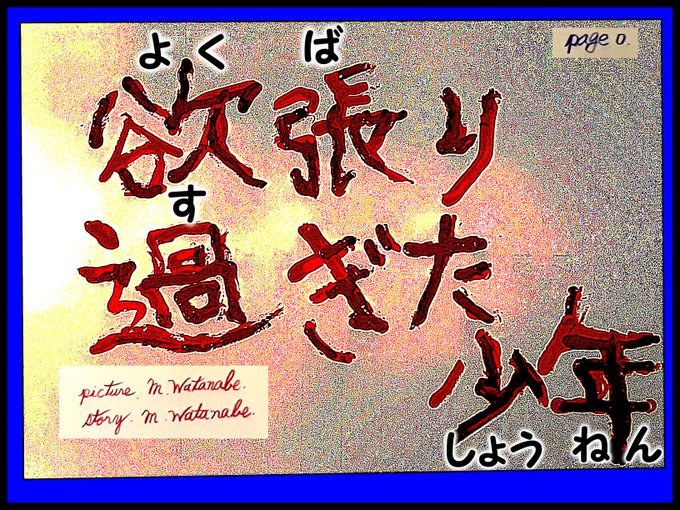 page 0.
よくば
欲張り
す
過ぎた
少年
しょうねん
picture. M. Watanabe.
story. M. Watanabe.